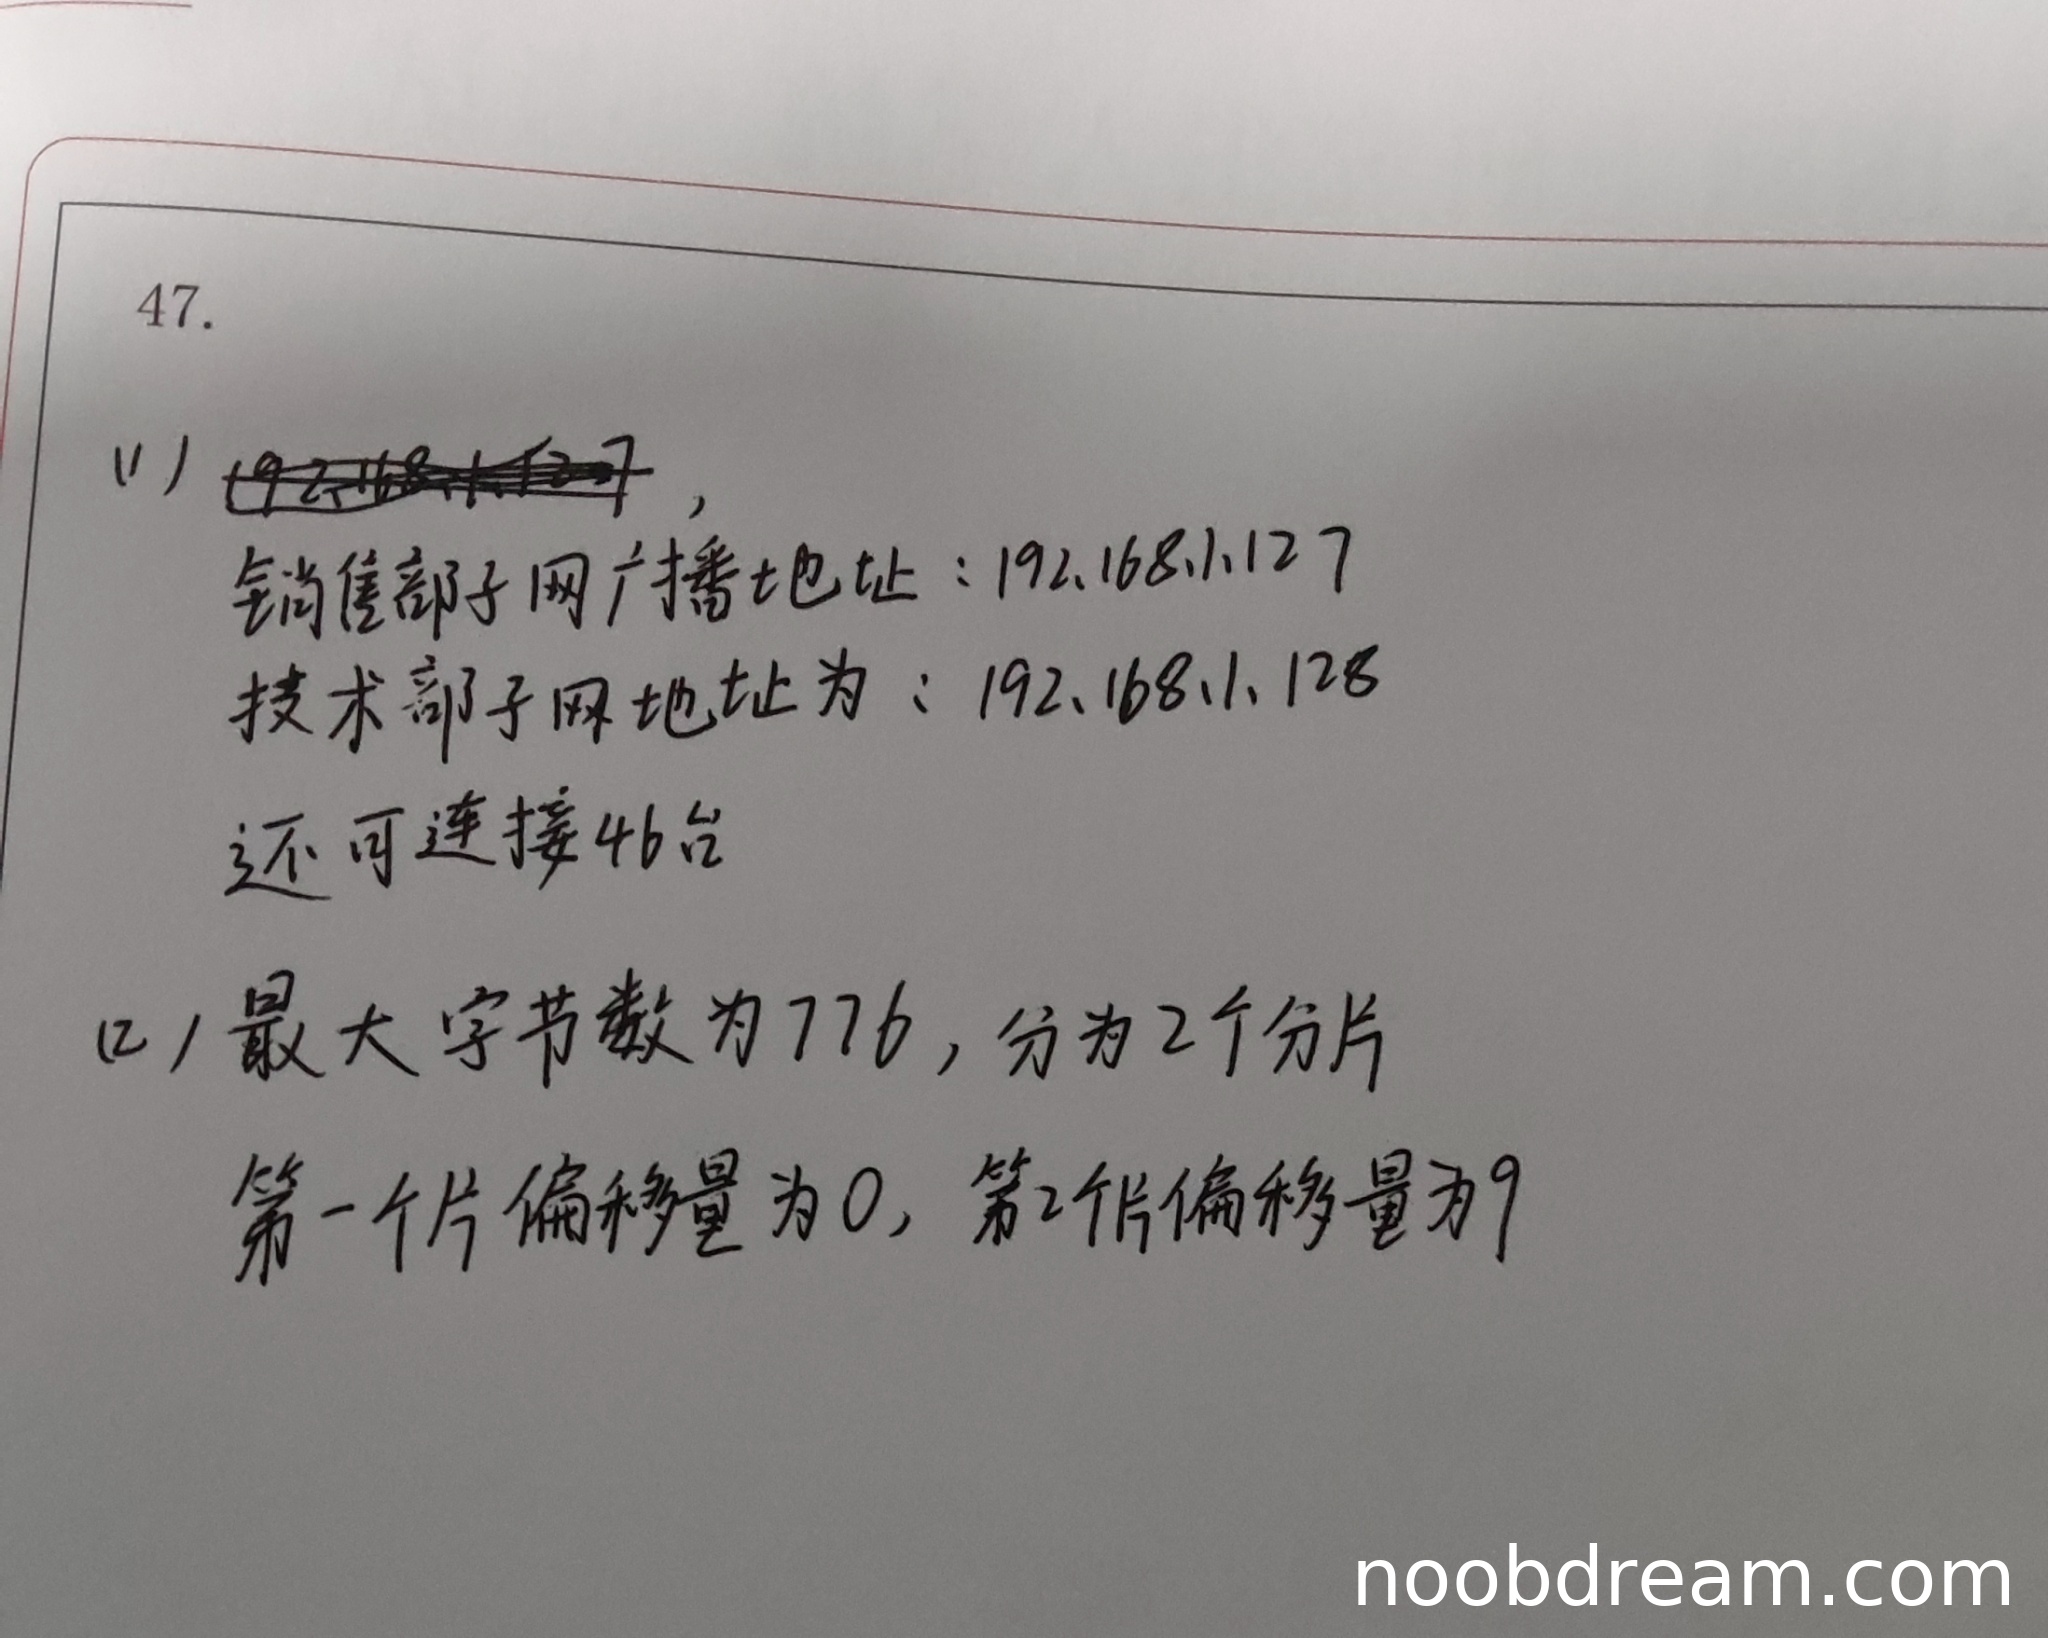 47.
(1) 192.168.1.127,
销售部子网广播地址:192.168.1.127
技术部子网地址为:192.168.1.128
还可连接46台
(2) 最大字节数为776,分为2个分片
第一个片偏移量为0,第2个片偏移量为9
noobdream.com